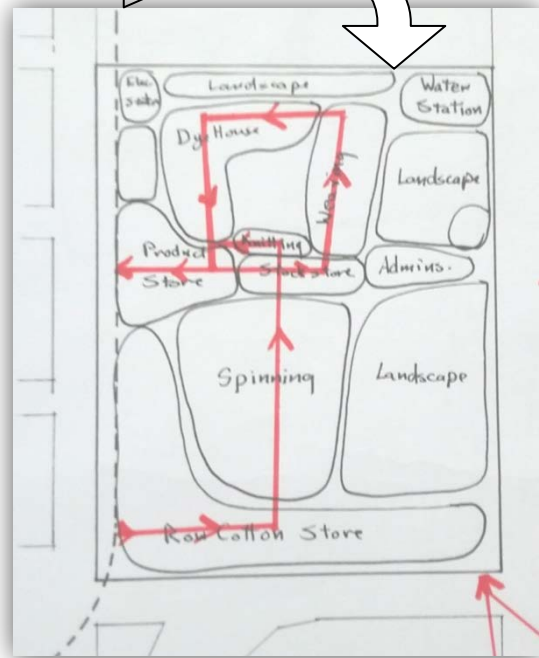 Elec.
Landscape
Water
Station
Dye House
Weaving
Landscape
Knitting
Product
Store
Stock store
Admins.
Spinning
Landscape
Raw Cotton Store